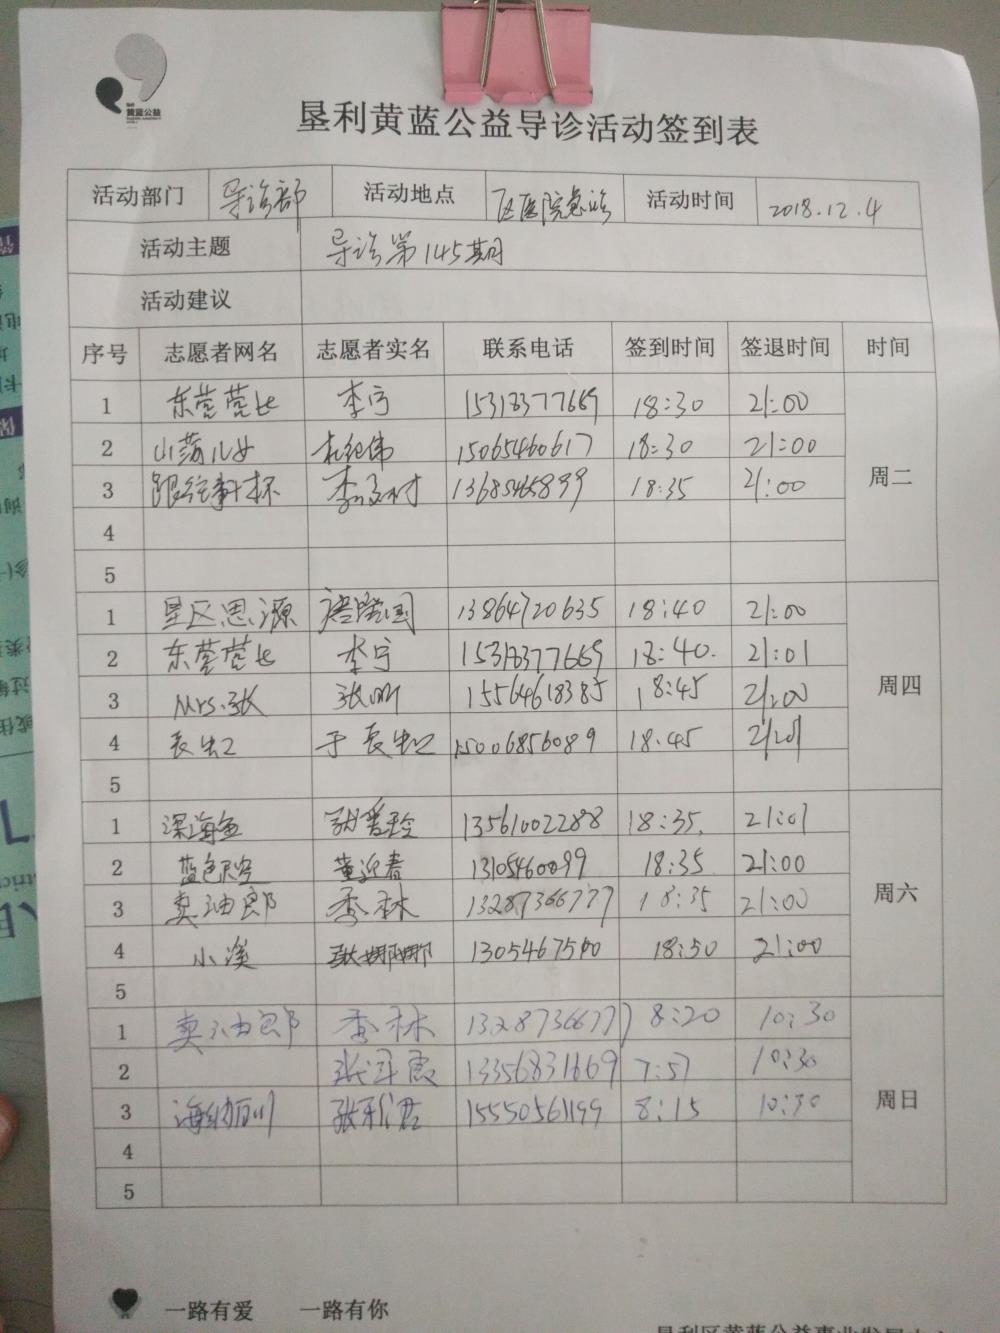 黄蓝公益
垦利黄蓝公益导诊活动签到表
活动部门 导诊部 活动地点 区医院急诊 活动时间 2018.12.4
活动主题 导诊第145期
活动建议
序号 志愿者网名 志愿者实名 联系电话 签到时间 签退时间 时间
1 东营营长 李宁 15318377669 18:30 21:00
2 山荡儿女 杜纪伟 15065460617 18:30 21:00
3 跟往事干杯 13685465899 18:35 21:00
周二
4
5
1 星区思源 13864720635 18:40 21:00
2 东营营长 李宁 15318377669 18:40. 21:01
3 Mrs.张 15564618385 18:45 21:00
周四
4 长虹 于长虹 15006856089 18:45 21:01
5
1 深海鱼 13561002288 18:35. 21:01
2 蓝色天空 董迎春 13105460099 18:35 21:00
3 卖油郎 李林 13287366777 18:35 21:00
周六
4 小溪 耿娜娜 13054675 18:50 21:00
5
1 卖油郎 李林 13287366777 8:20 10:30
2 13356831669 7:57 10:30
3 海纳百川 张利君 15550561199 8:15 10:30
周日
4
5
一路有爱 一路有你
垦利区黄蓝公益事业发展中心